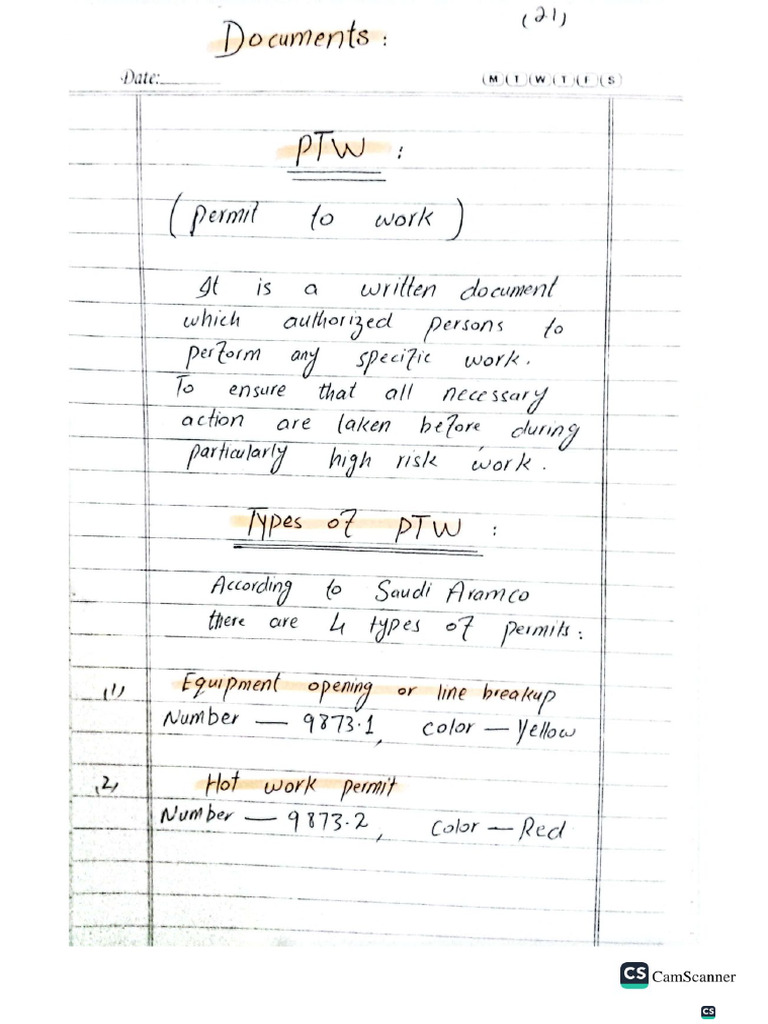 (21)
Documents :
Date:
M T W T F S
PTW :
(permit to work)
It is a written document
which authorized persons to
perform any specific work.
To ensure that all necessary
action are taken before during
particularly high risk work.
Types of PTW :
According to Saudi Aramco
there are 4 types of permits :
(1) Equipment opening or line breakup
Number — 9873.1, Color — Yellow
(2) Hot work permit
Number — 9873.2, Color — Red
CS CamScanner
CS